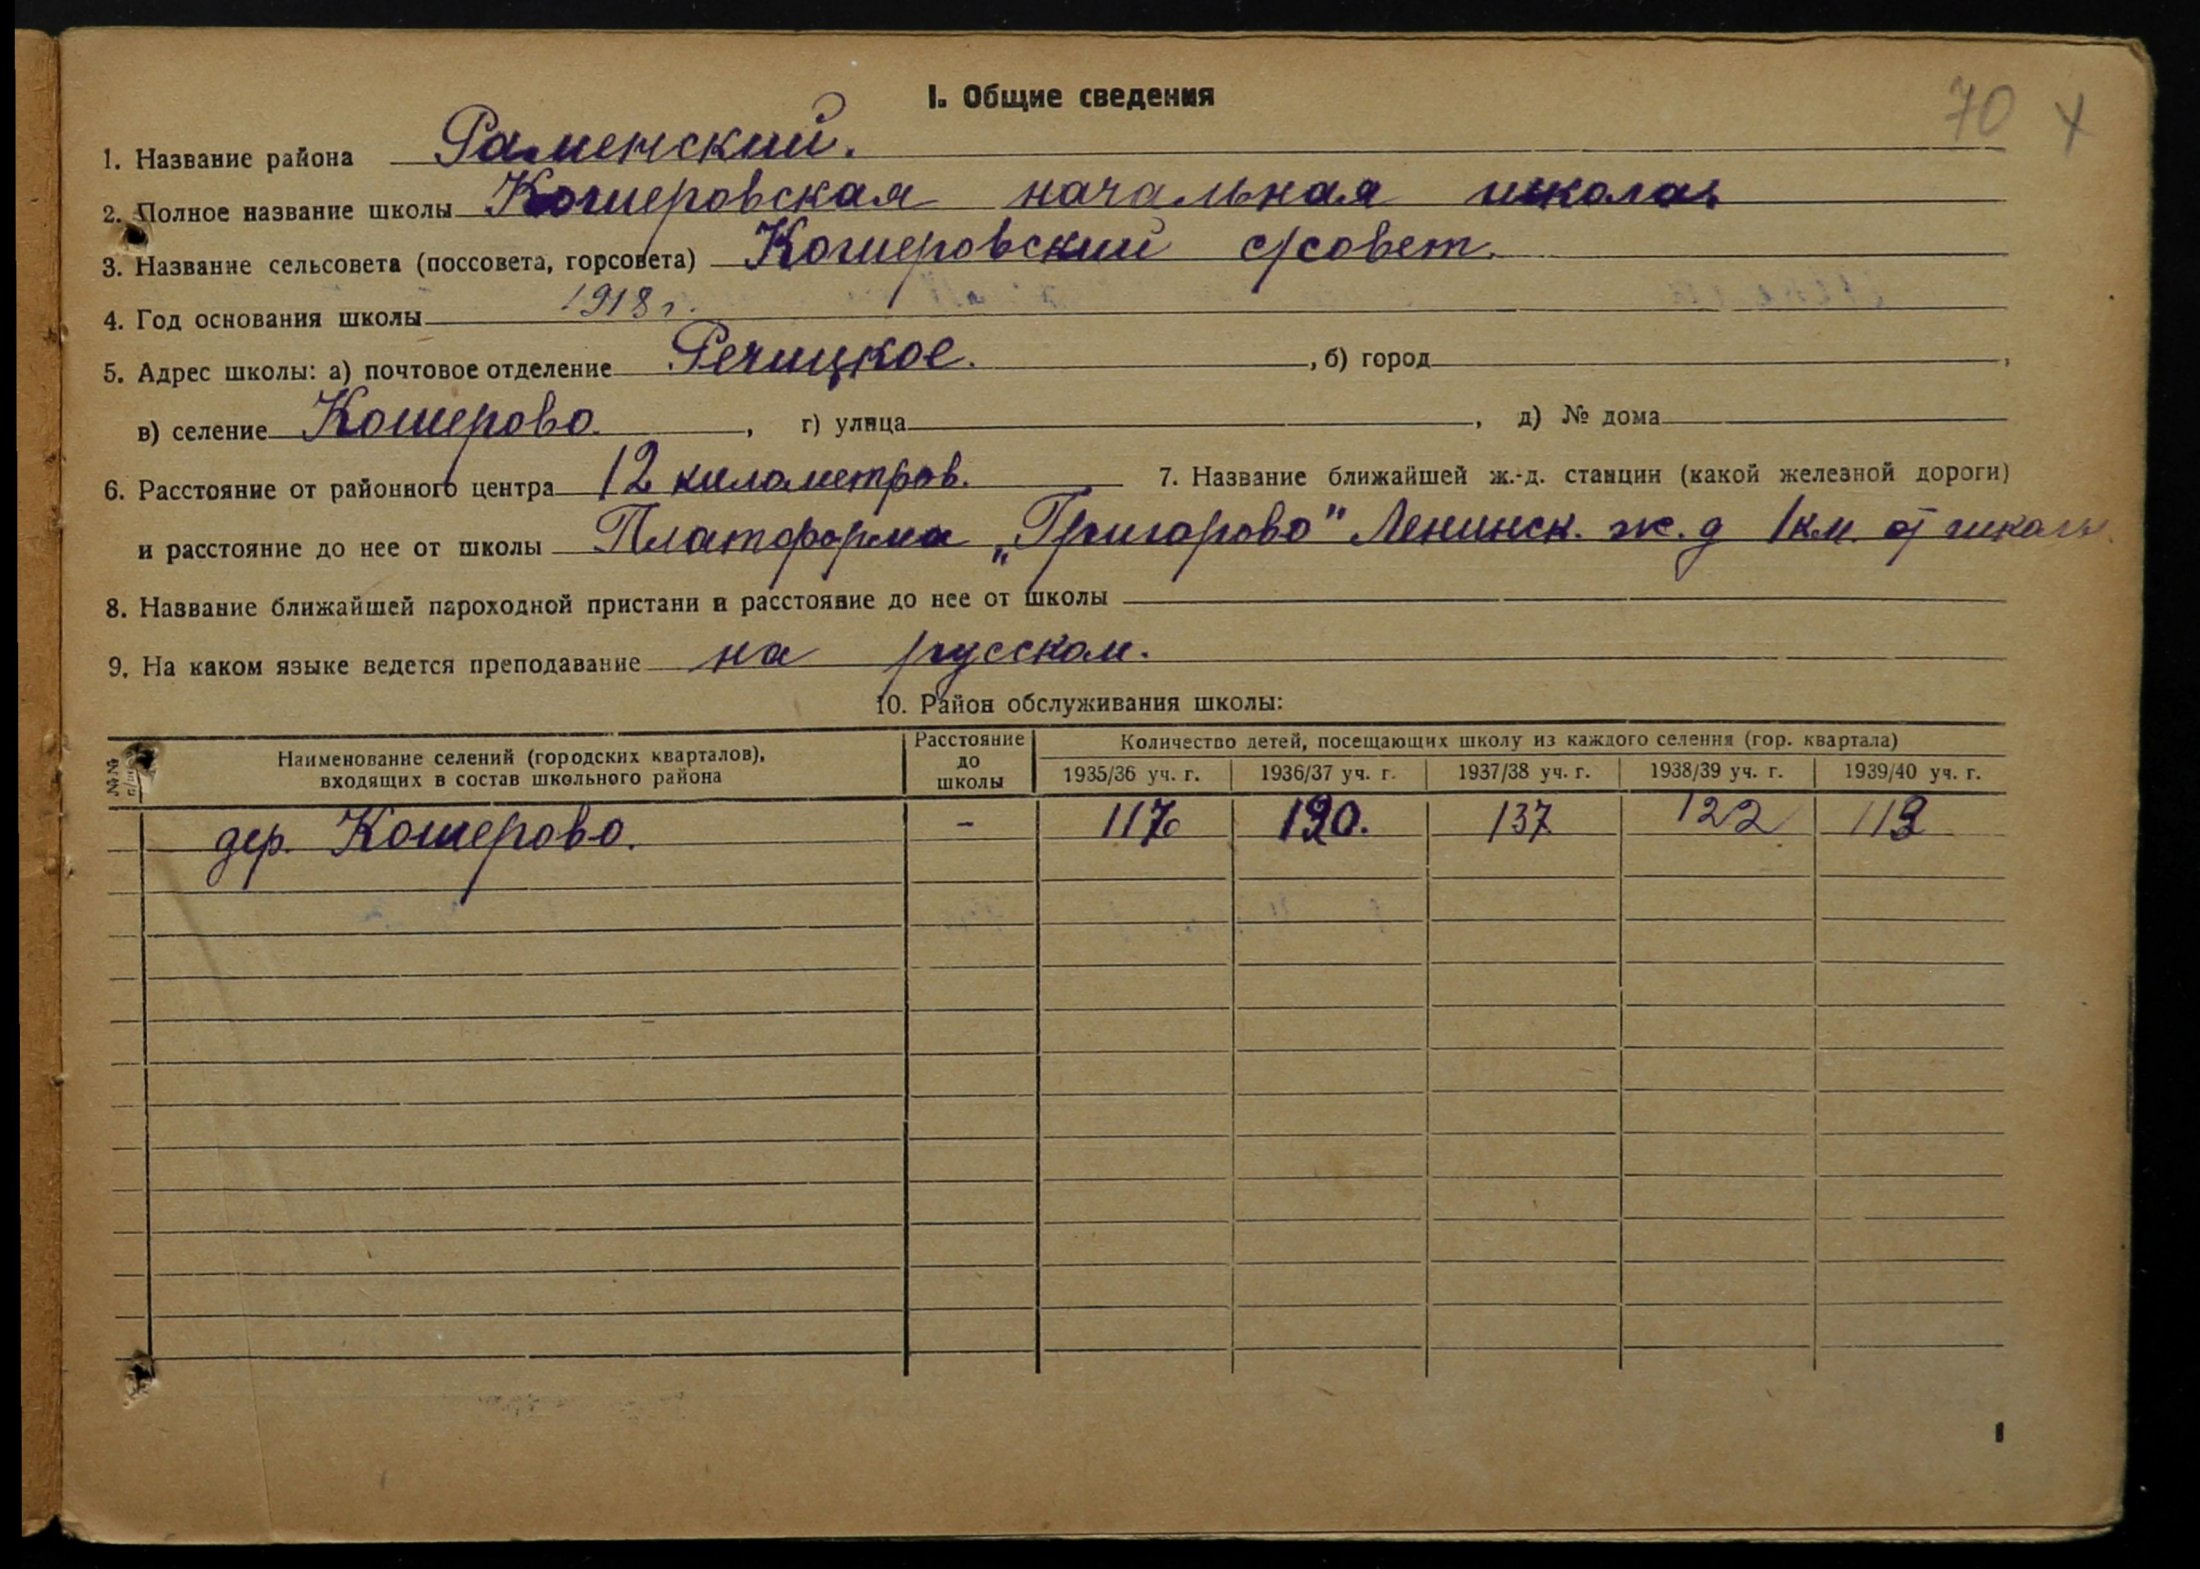 I. Общие сведения
70
1. Название района Раменский.
2. Полное название школы Кошеровская начальная школа
3. Название сельсовета (поссовета, горсовета) Кошеровский с/совет.
4. Год основания школы 1918 г.
5. Адрес школы: а) почтовое отделение Речицкое. , б) город ,
в) селение Кошерово , г) улица , д) № дома
6. Расстояние от районного центра 12 километров. 7. Название ближайшей ж.-д. станции (какой железной дороги)
и расстояние до нее от школы Платформа „Григорово" Ленинск. ж.д 1 км. от школы.
8. Название ближайшей пароходной пристани и расстояние до нее от школы
9. На каком языке ведется преподавание на русском.
10. Район обслуживания школы:
№№ п/п Наименование селений (городских кварталов), входящих в состав школьного района Расстояние до школы Количество детей, посещающих школу из каждого селения (гор. квартала)
1935/36 уч. г. 1936/37 уч. г. 1937/38 уч. г. 1938/39 уч. г. 1939/40 уч. г.
дер. Кошерово. - 137 122
1